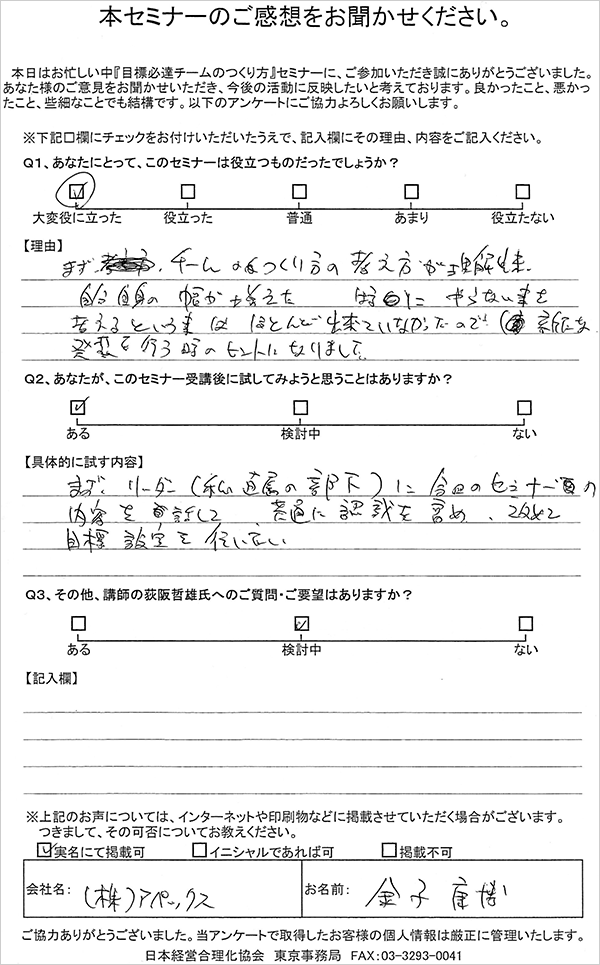 本セミナーのご感想をお聞かせください。
本日はお忙しい中『目標必達チームのつくり方』セミナーに、ご参加いただき誠にありがとうございました。
あなた様のご意見をお聞かせいただき、今後の活動に反映したいと考えております。良かったこと、悪かっ
たこと、些細なことでも結構です。以下のアンケートにご協力よろしくお願いします。
※下記口欄にチェックをお付けいただいたうえで、記入欄にその理由、内容をご記入ください。
Q1、あなたにとって、このセミナーは役立つものだったでしょうか？
大変役に立った 役立った 普通 あまり 役立たない
【理由】
まず、チームのつくり方の考え方が理解出来
自分自身の幅が増えた やらない事を
考えるという事はほとんど出来ていなかったので 新たな
発想を行う時のヒントになりまして
Q2、あなたが、このセミナー受講後に試してみようと思うことはありますか？
ある 検討中 ない
【具体的に試す内容】
まず、リーダー(私直属の部下)に今回のセミナーの
内容を話して 共通に認識を含め、改めて
目標設定を行いたい
Q3、その他、講師の荻阪哲雄氏へのご質問・ご要望はありますか？
ある 検討中 ない
【記入欄】
※上記のお声については、インターネットや印刷物などに掲載させていただく場合がございます。
つきまして、その可否についてお教えください。
実名にて掲載可 イニシャルであれば可 掲載不可
会社名： (株)アペックス お名前： 金子 康博
ご協力ありがとうございました。当アンケートで取得したお客様の個人情報は厳正に管理いたします。
日本経営合理化協会 東京事務局 FAX：03-3293-0041